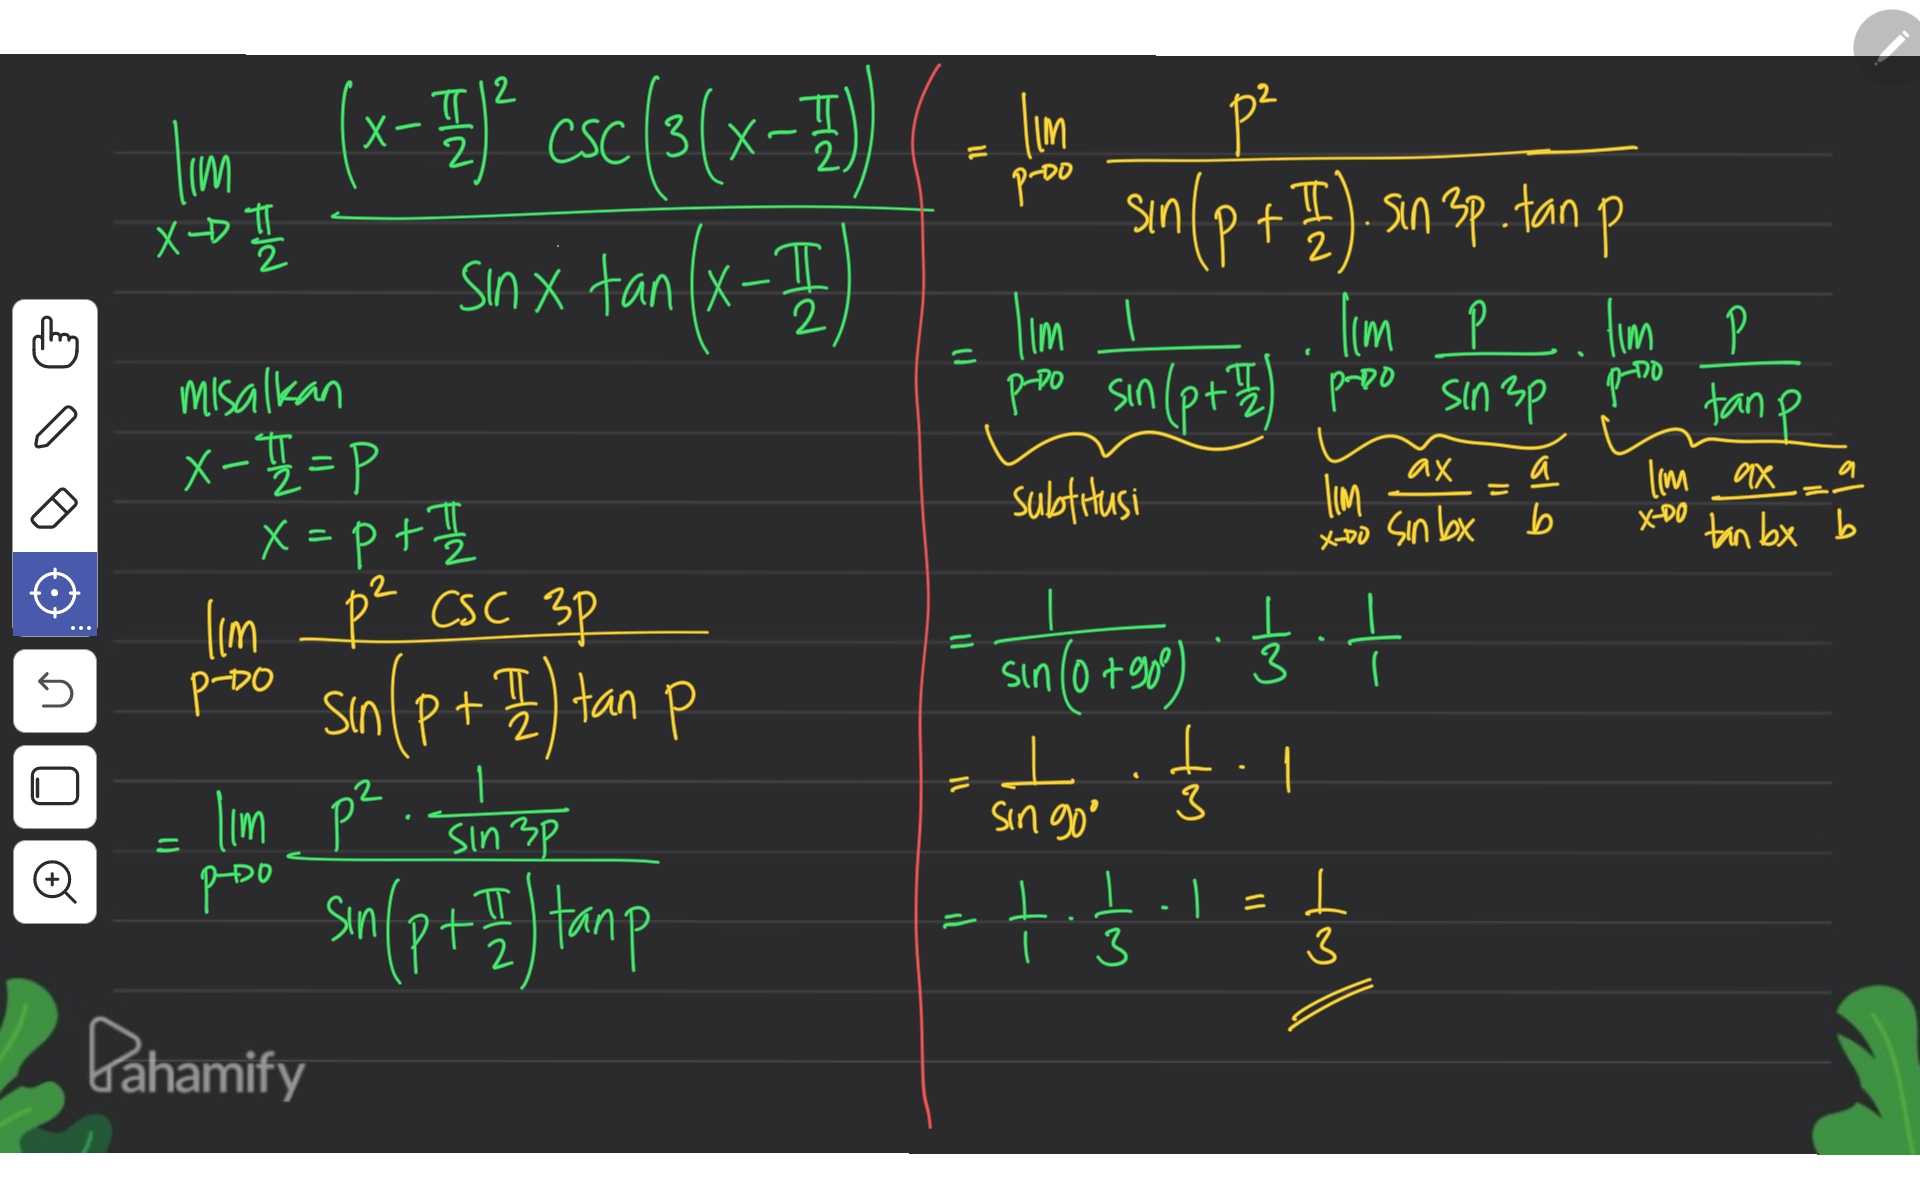 lim x→π/2 (x-π/2)² csc(3(x-π/2)) / sin x tan(x-π/2)
misalkan
x-π/2 = p
x = p+π/2
lim p→0 p² csc 3p / sin(p+π/2) tan p
= lim p→0 p² · 1/sin 3p / sin(p+π/2) tan p
= lim p→0 p² / sin(p+π/2) · sin 3p · tan p
= lim p→0 1/sin(p+π/2) · lim p→0 p/sin 3p · lim p→0 p/tan p
subtitusi lim x→0 ax/sin bx = a/b lim x→0 ax/tan bx = a/b
= 1/sin(0+90°) · 1/3 · 1/1
= 1/sin 90° · 1/3 · 1
= 1/1 · 1/3 · 1 = 1/3
Pahamify